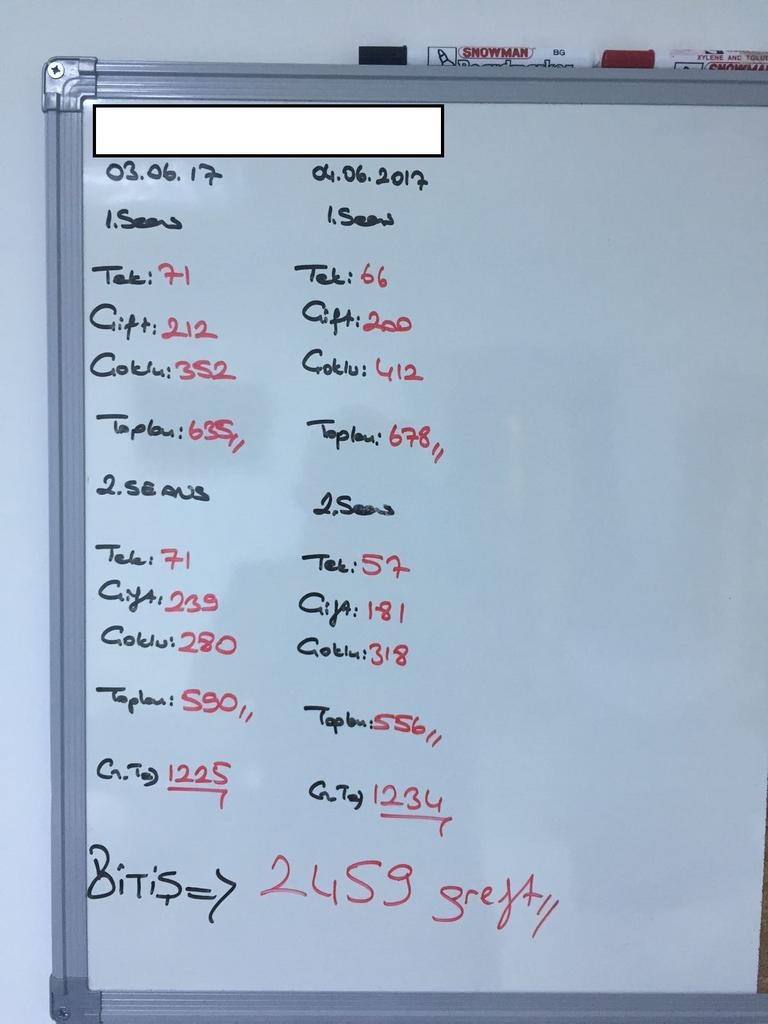 SNOWMAN BG
Boardmarker
XYLENE AND TOLU
SNOWMA
03.06.17
1.Seans
Tek: 71
Çift: 212
Çoklu: 352
Toplam: 635,,
2.SEANS
Tek: 71
Çift: 239
Çoklu: 280
Toplam: 590,,
G.To) 1225
04.06.2017
1.Seans
Tek: 66
Çift: 200
Çoklu: 412
Toplam: 678,,
2.Seans
Tek: 57
Çift: 181
Çoklu: 318
Toplam: 556,,
G.To) 1234
BİTİŞ=> 2459 greft,,